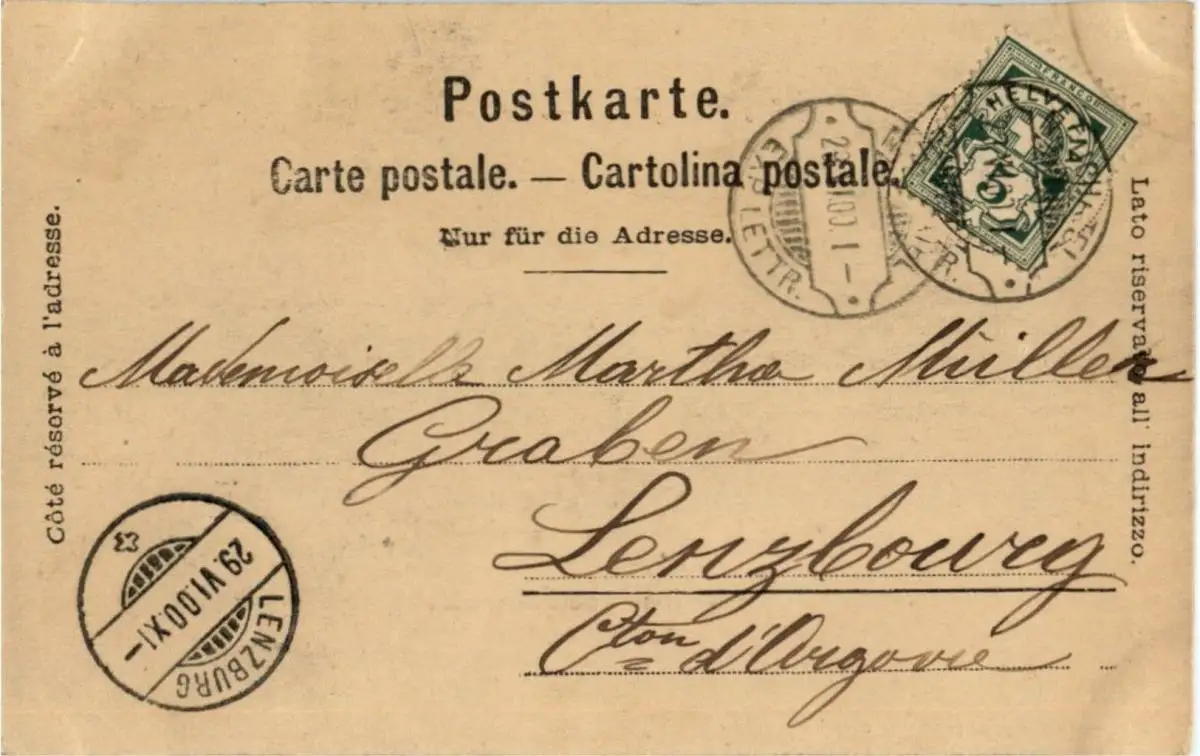 Postkarte.
Carte postale. — Cartolina postale.
Nur für die Adresse.
Côté réservé à l'adresse.
Lato riservato all' indirizzo.
FRANCO
HELVETIA
5
EXP. LETTR.
Mademoiselle Martha Müller
Graben
Lenzbourg
Cton d'Argovie
29. VI. 00. XI —
LENZBURG